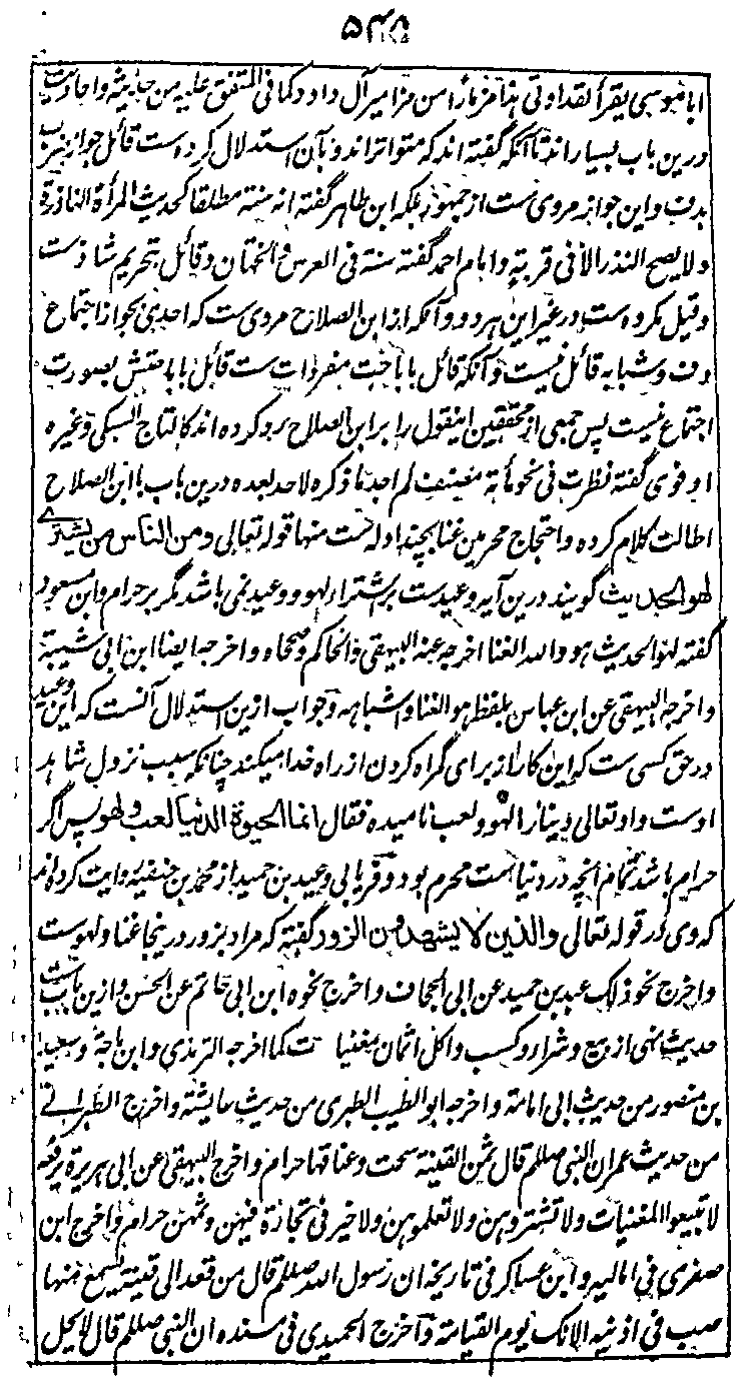 ۵۴۵
ابا موسی یقرأ لقد اوتی هذا مزمارا من مزامیر آل داود کما فی المتفق علیه من حدیثه و احادیث
درین باب بسیار اند تا آنکه گفته اند که متواتر اند و بآن استدلال کرده است قائل جواز ضرب
بدف و این جواز مروی ست از جمهور بلکه ابن طاهر گفته انه سنة مطلقا لحدیث المرأة الناذرة
ولا یصح النذر الا فی قربة و امام احمد گفته سنة فی العرس و الختان و قائل بتحریم شاذ ست
و قیل مکروه ست در غیر این هر دو و آنکه از ابن الصلاح مروی ست که احدی بجواز اجتماع
دف و شبابه قائل نیست و آنکه قائل باباحت مفردات ست قائل باباحتش بصورت
اجتماع نیست پس جمعی از محققین اینقول را بر ابن الصلاح رد کرده اند کالتاج السبکی و غیره
ادفوی گفته نظرت فی نحو مأیة مصنف لم اجد ما ذکره لاحد بعده درین باب با ابن الصلاح
اطالت کلام کرده و احتجاج محرمین غنا بچند ادله ست منها قوله تعالی و من الناس من یشتری
لهو الحدیث گویند درین آیه وعید ست بر اشتراء لهو و وعید نمی باشد مگر بر حرام و ابن مسعود
گفته لهو الحدیث هو والله الغنا اخرجه عنه البیهقی و الحاکم و صححاه و اخرجه ایضا ابن ابی شیبة
و اخرجه البیهقی عن ابن عباس بلفظ هو الغنا و اشباهه و جواب ازین استدلال آنست که این وعید
در حق کسی ست که این کار را از برای گمراه کردن از راه خدا میکند چنانکه سبب نزول شاهد
اوست و او تعالی دنیا را لهو و لعب نامیده فقال انما الحیوة الدنیا لعب و لهو پس اگر
حرام باشد تمام انچه در دنیا ست محرم بود و فریابی و عبد بن حمید از محمد بن حنفیه روایت کرده اند
که وی در قوله تعالی والذین لا یشهدون الزور گفته که مراد بزور درینجا غنا و لهو ست
و اخرج نحو ذلک عبد بن حمید عن ابی الجحاف و اخرج نحوه ابن ابی حاتم عن الحسن و ازین باب ست
حدیث نهی از بیع و شراء و کسب و اکل اثمان مغنیات کما اخرجه الترمذی و ابن ماجة و سعید
بن منصور من حدیث ابی امامة و اخرجه ابو الطیب الطبری من حدیث عایشة و اخرج الطبرانی
من حدیث عمر ان النبی صللم قال ثمن القینة سحت و غناؤها حرام و اخرج البیهقی عن ابی هریرة یرفعه
لا تبیعوا المغنیات ولا تشتروهن ولا تعلموهن ولا خیر فی تجارة فیهن و ثمنهن حرام و اخرج ابن
صصری فی امالیه و ابن عساکر فی تاریخه ان رسول الله صللم قال من قعد الی قینة یسمع منها
صب فی اذنیه الآنک یوم القیامة و اخرج الحمیدی فی مسنده ان النبی صللم قال لا یحل